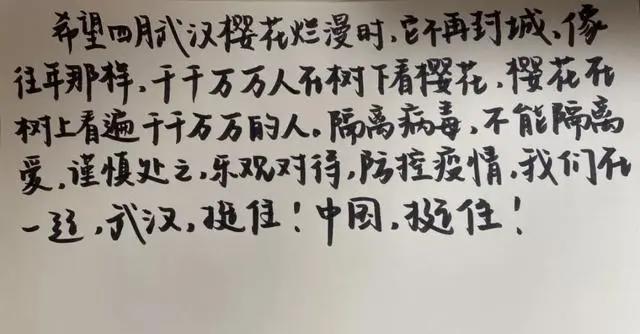 希望四月武汉樱花烂漫时，它不再封城，像
往年那样，千千万万人在树下看樱花，樱花在
树上看遍千千万万的人。隔离病毒，不能隔离
爱，谨慎处之，乐观对待，防控疫情，我们在
一起，武汉，挺住！中国，挺住！